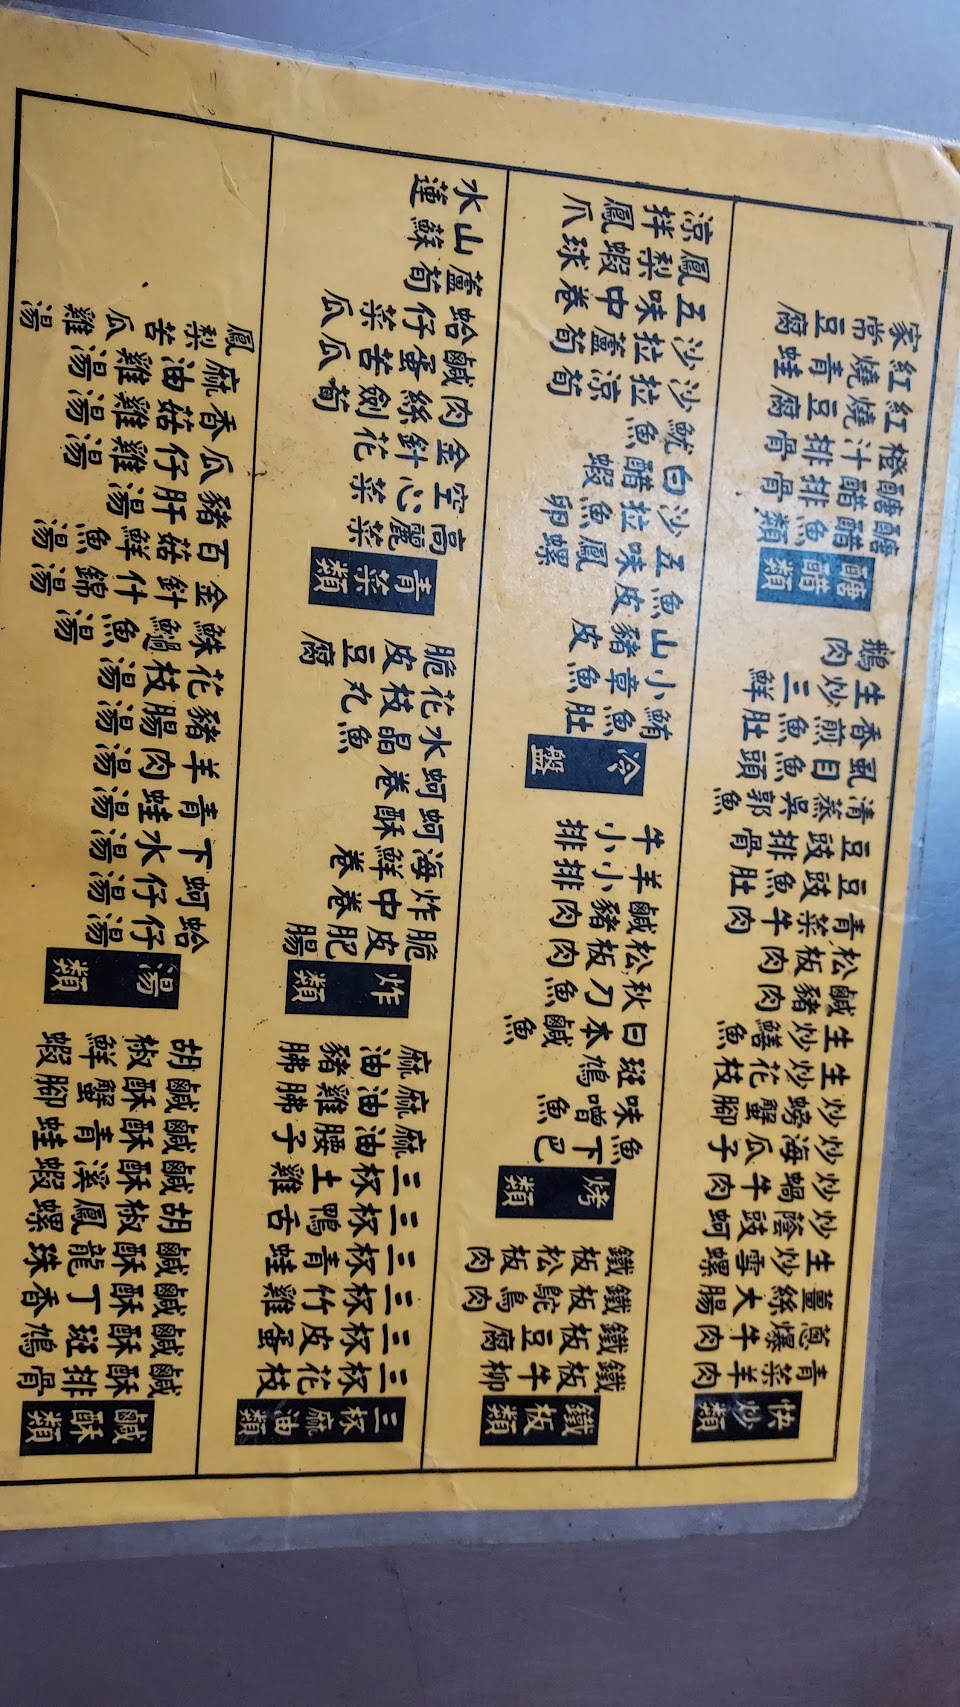 快炒類
青菜羊肉
蔥爆牛肉
薑絲大腸
生炒雪螺
炒蔭豉蚵
炒蝸牛肉
炒海瓜子
炒螃蟹腳
生炒花枝
生炒鱔魚
鹹豬肉
松板肉
青菜牛肉
豆豉魚肚
豆豉排骨
清蒸吳郭魚
虱目魚頭
香煎魚肚
生炒三鮮
鵝肉
醣醋類
醣醋魚
醣醋排骨
橙汁排骨
紅燒豆腐
紅燒青蛙
家常豆腐
鐵板類
鐵板牛柳
鐵板豆腐
鐵板鴕鳥肉
鐵板松板肉
烤類
魚下巴
味噌魚
斑鳩
日本鹹魚
秋刀魚
松板肉
鹹豬肉
羊小排
牛小排
冷盤
鮪魚肚
小章魚
山豬皮
魚皮
五味鳳螺
沙拉魚卵
白醋蝦
魷魚
沙拉涼筍
沙拉蘆筍
五味中卷
鳳梨蝦球
涼拌鳳爪
青菜類
高麗菜
空心菜
金針花
肉絲劍筍
鹹蛋苦瓜
蛤仔菜瓜
蘆筍
山蘇
水蓮
炸類
脆皮肥腸
炸中卷
海鮮卷
蚵卷
蚵酥
水晶魚
花枝丸
脆皮豆腐
三杯麻油類
三杯花枝
三杯皮蛋
三杯竹雞
三杯青蛙
三杯鴨舌
三杯土雞
麻油腰子
麻油雞胇
麻油豬胇
鹹酥類
鹹酥排骨
鹹酥斑鳩
鹹酥丁香
鹹酥龍珠
胡椒鳳螺
鹹酥溪蝦
鹹酥青蛙
鹹酥蟹腳
胡椒鮮蝦
湯類
蛤仔湯
蚵仔湯
下水湯
青蛙湯
羊肉湯
豬腸湯
花枝湯
魚湯
金針什錦湯
百菇鮮魚湯
豬肝湯
瓜仔雞湯
香菇雞湯
麻油雞湯
鳳梨苦瓜雞湯